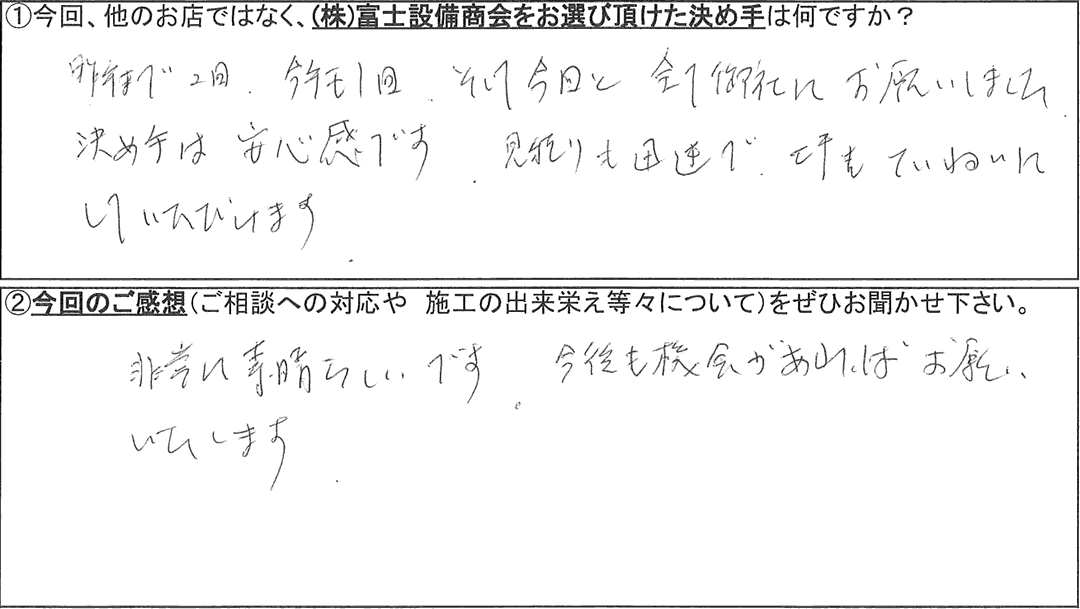 ①今回、他のお店ではなく、(株)富士設備商会をお選び頂けた決め手は何ですか？
昨年まで2回、今年も1回、そして今回と全て御社にお願いしました
決め手は安心感です。見積りも迅速で、工事もていねいに
していただけます。
②今回のご感想(ご相談への対応や 施工の出来栄え等々について)をぜひお聞かせ下さい。
非常に素晴らしいです。今後も機会があればお願い
いたします。